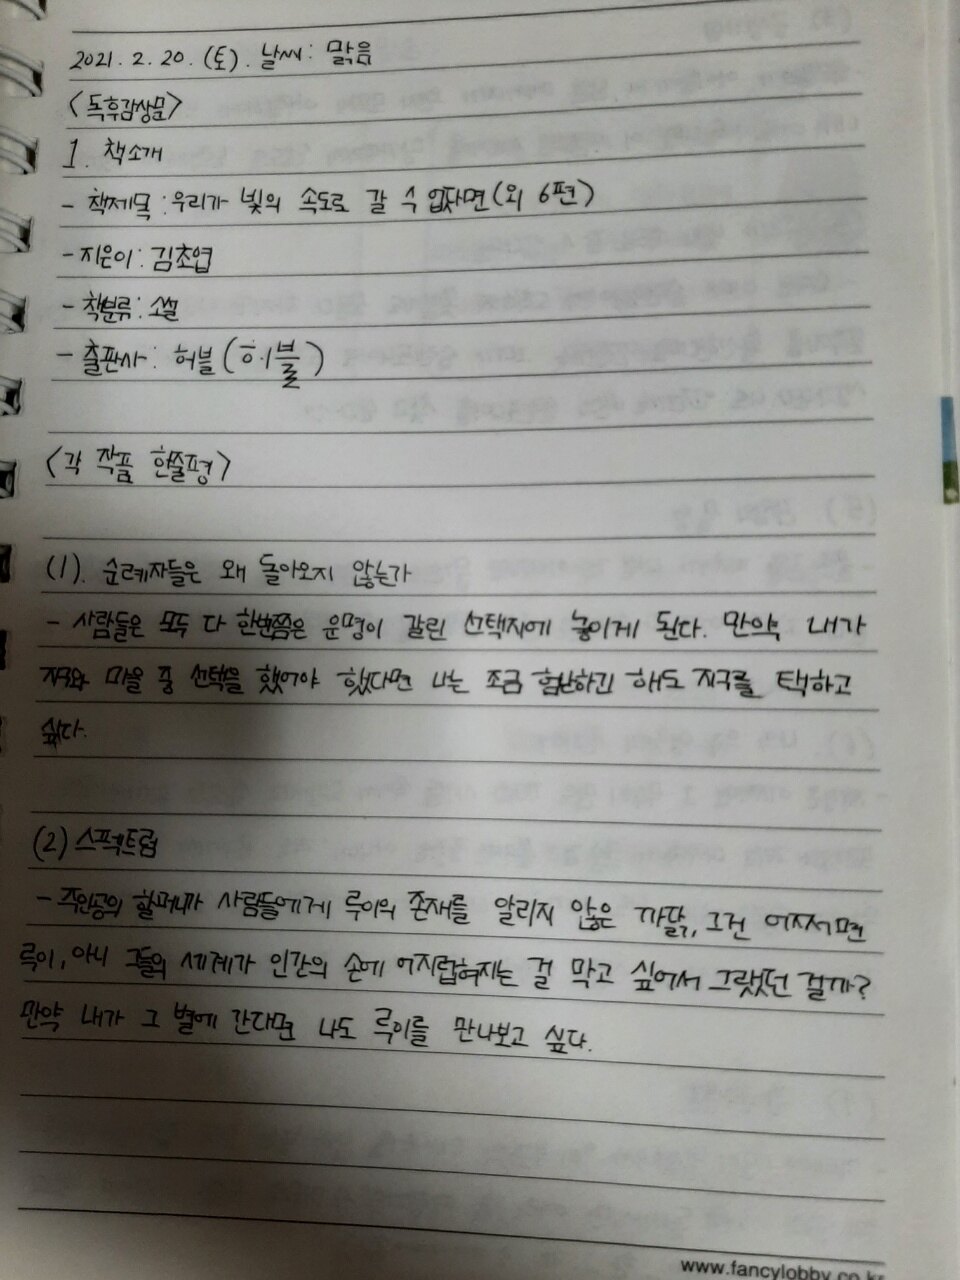 2021. 2. 20. (토). 날씨: 맑음
<독후감상문>
1. 책소개
- 책제목 : 우리가 빛의 속도로 갈 수 없다면 (외 6편)
- 지은이 : 김초엽
- 책분류 : 소설
- 출판사 : 허블 (허블)
<각 작품 한줄평>
(1). 순례자들은 왜 돌아오지 않는가
- 사람들은 모두 다 한번쯤은 운명이 갈린 선택지에 놓이게 된다. 만약 내가
지구와 마을 중 선택을 했어야 했다면 나는 조금 험난하긴 해도 지구를 택하고
싶다.
(2) 스펙트럼
- 주인공의 할머니가 사람들에게 루이의 존재를 알리지 않은 까닭, 그건 어쩌면
루이, 아니 그들의 세계가 인간의 손에 어지럽혀지는 걸 막고 싶어서 그랬던 걸까?
만약 내가 그 별에 간다면 나도 루이를 만나보고 싶다.
www.fancylobby.co.kr